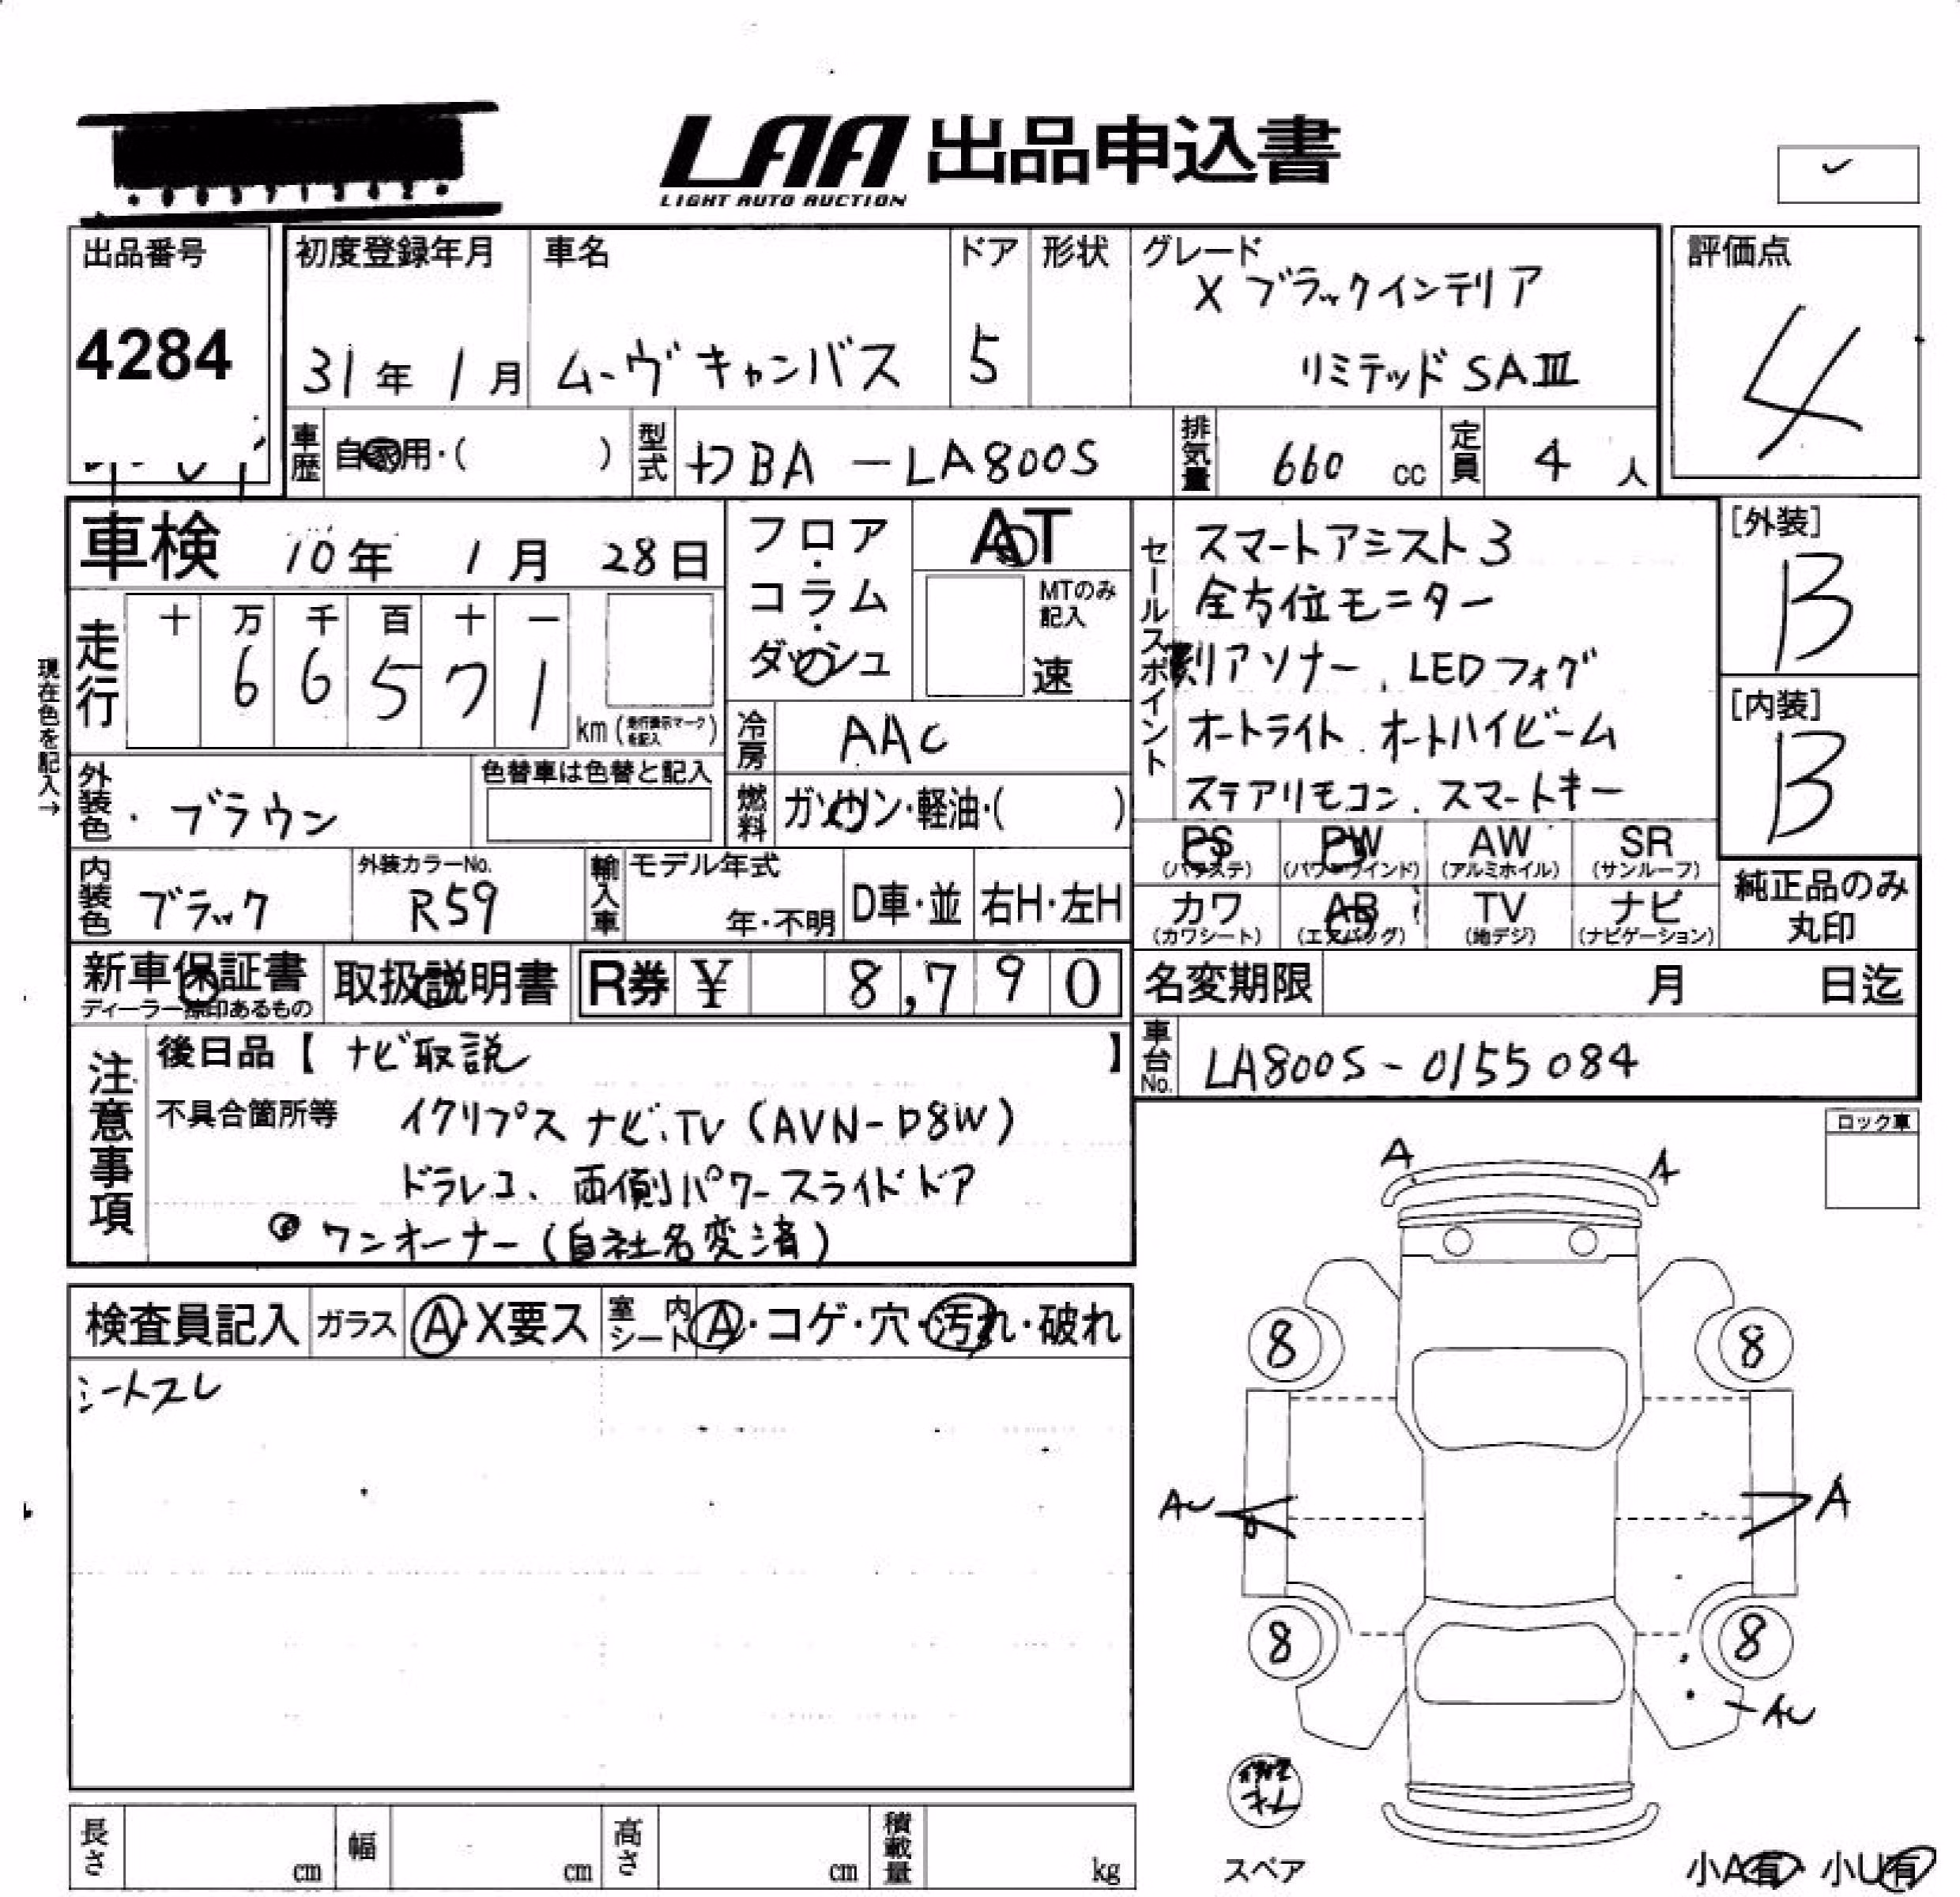 LAA 出品申込書
LIGHT AUTO AUCTION
出品番号
4284
初度登録年月
31年 1月
車名
ムーヴキャンバス
ドア
5
形状
グレード
X ブラックインテリア
リミテッド SAⅢ
評価点
4
車歴
自家用・( )
型式
DBA - LA800S
排気量
660 cc
定員
4 人
車検 10年 1月 28日
フロア・コラム・ダッシュ
AT
MTのみ記入
速
走行
十 万 千 百 十 一
6 6 5 7 1
km (走行表示マークを記入)
現在色を記入→
冷房
AAC
燃料
ガソリン・軽油・( )
セールスポイント
スマートアシスト3
全方位モニター
リアソナー、LEDフォグ
オートライト、オートハイビーム
ステアリモコン、スマートキー
[外装]
B
[内装]
B
外装色
ブラウン
色替車は色替と記入
内装色
ブラック
外装カラーNo.
R59
輸入車
モデル年式
年・不明
D車・並
右H・左H
PS (パワステ)
PW (パワーウインド)
AW (アルミホイル)
SR (サンルーフ)
カワ (カワシート)
AB (エアバッグ)
TV (地デジ)
ナビ (ナビゲーション)
純正品のみ丸印
新車保証書
ディーラー捺印あるもの
取扱説明書
R券 ¥ 8,790
名変期限 月 日迄
車台No.
LA800S-0155084
注意事項
後日品【 ナビ取説 】
不具合箇所等
イクリプス ナビ、TV (AVN-D8W)
ドラレコ、両側パワースライドドア
ワンオーナー (自社名変済)
ロック車
検査員記入
ガラス
A・X要ス
室内シート
A・コゲ・穴・汚れ・破れ
シートスレ
A
A
8
8
AU
A
8
8
AU
スペア
小A有・小U有
長さ cm
幅 cm
高さ cm
積載量 kg